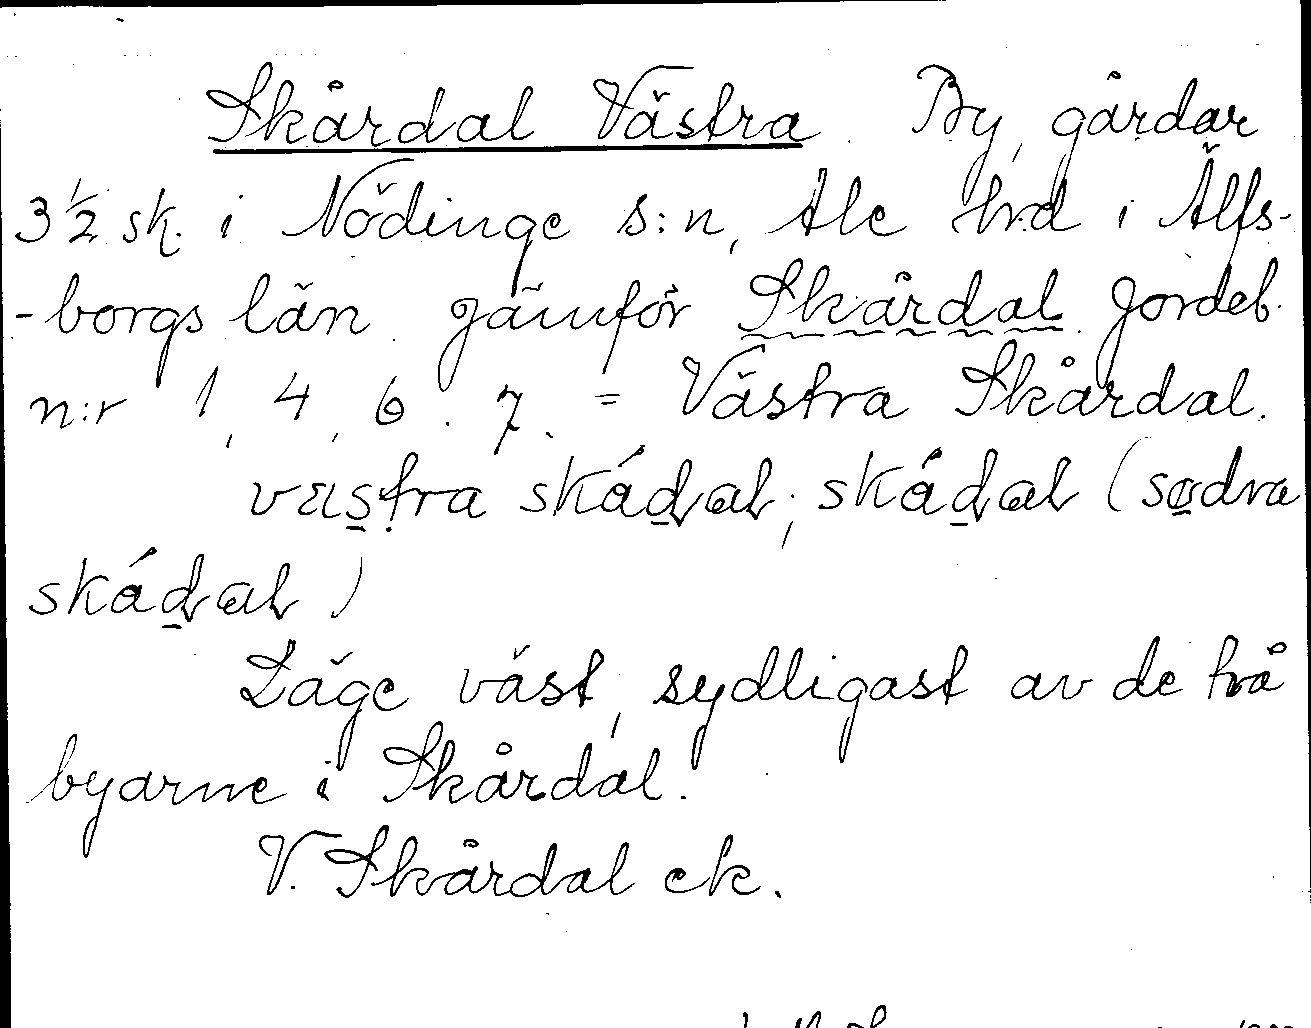 Skårdal Västra. By, gårdar
3 1/2 sk. i Nödinge s:n, Ale hrd i Älfs-
-borgs län. Jämför Skårdal. Jordeb.
n:r 1, 4, 6. 7. = Västra Skårdal.
væstra skádal; skádal (sødra
skádal)
Läge väst, sydligast av de två
byarne i Skårdal.
V. Skårdal ek.